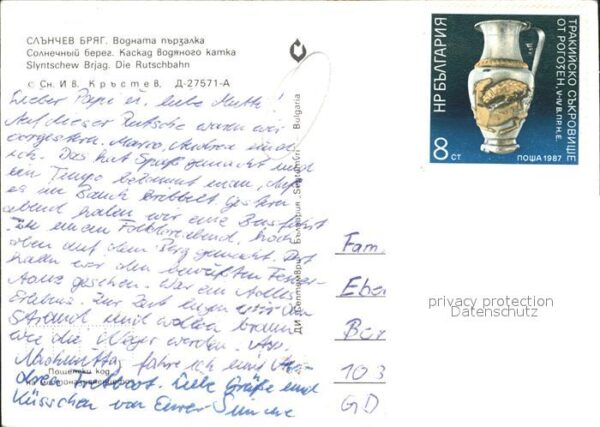 СЛЪНЧЕВ БРЯГ. Водната пързалка
Солнечный берег. Каскад водяного катка
Slyntschew Brjag. Die Rutschbahn
Сн. И. В. Кръстев, Д-27571-А
Lieber Papi u. liebe Mutti!
Auf dieser Rutsche waren wir
vorgestern. Marco, Andrea und
ich. Das hat Spaß gemacht und
ein Tempo bekommt man,
es im Bauch kribbelt. Gestern
abend haben wir eine Busfahrt
zu einem Folkloreabend, hoch
oben auf dem Berg gemacht. Dort
haben wir den berühmten Feuer-
tanz gesehen. War ein tolles
Erlebnis. Zur Zeit liegen wir am
Strand und wollen braun
wie die Neger werden. Am
Nachmittag fahre ich mit An-
drea Tretboot. Liebe Grüße und
Küsschen von Eurer Simone
Пощенски код
ДИ „Септември“ България „Septemvri“ Bulgaria
НР БЪЛГАРИЯ
8 СТ
ПОЩА 1987
ТРАКИЙСКО СЪКРОВИЩЕ
ОТ РОГОЗЕН, V-IV В.ПР.Н.Е.
Fam.
Eber
Ber
103
GD
privacy protection
Datenschutz